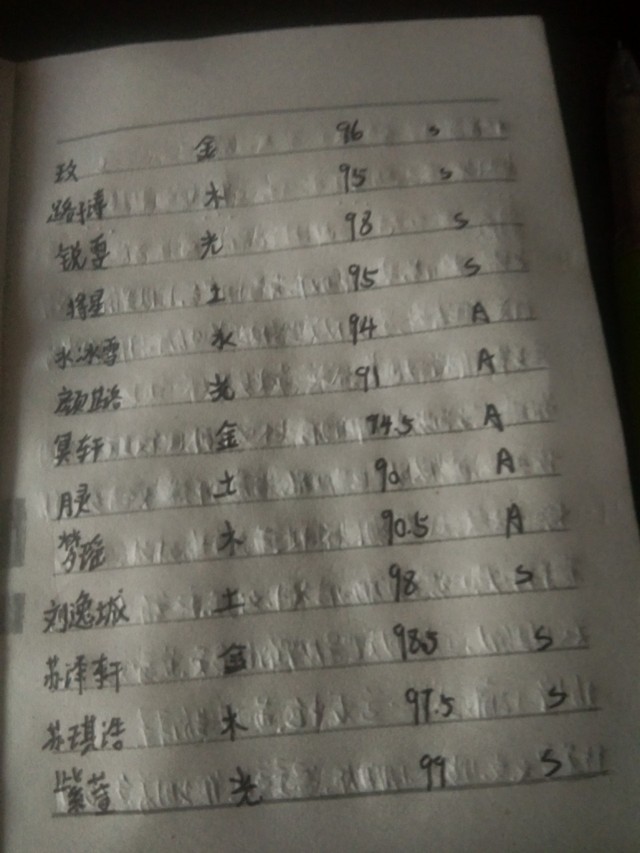 玫 金 96 s
路博 木 95 s
锐雯 光 98 s
将星 土 95 s
水冰雪 水 94 A
颜路 光 91 A
昊轩 金 94.5 A
月灵 土 90 A
梦瑶 木 90.5 A
刘逸城 土 98 s
苏泽轩 金 98.5 s
苏琪浩 木 97.5 s
紫萱 光 99 s